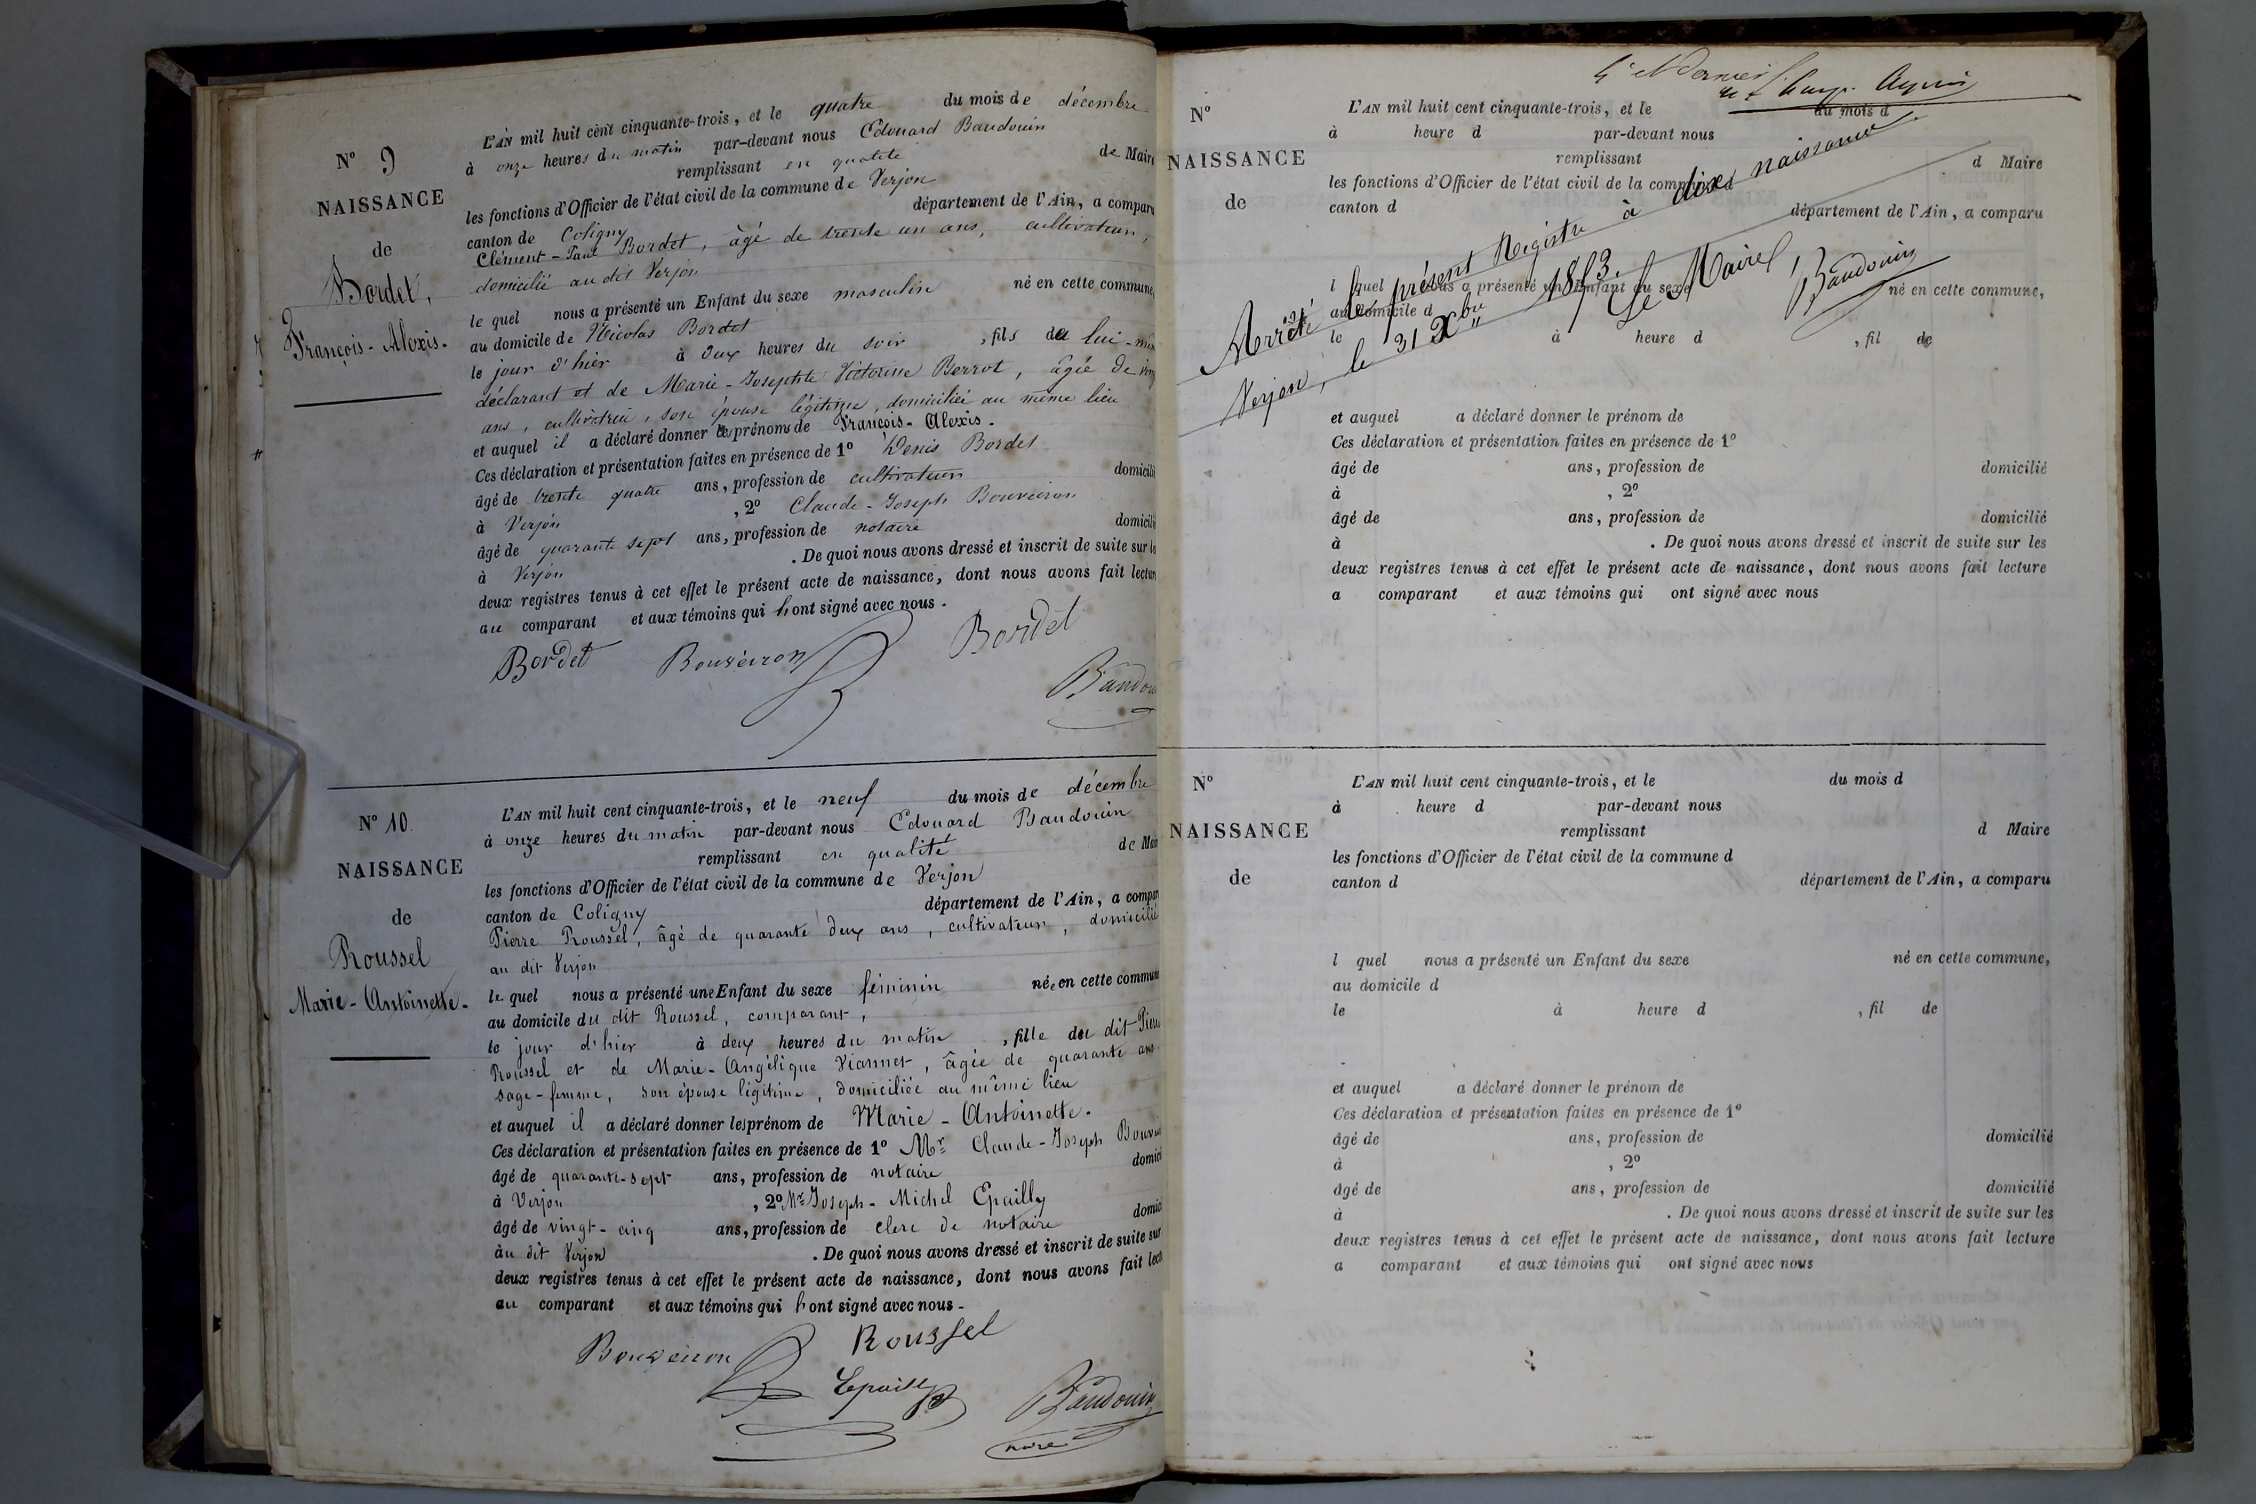 N° 9
NAISSANCE
de
Bordet,
François-Alexis.
L'AN mil huit cent cinquante-trois, et le quatre du mois de décembre
à onze heures du matin par-devant nous Edouard Baudouin
remplissant en qualité de Maire
les fonctions d'Officier de l'état civil de la commune de Verjon
canton de Coligny département de l'Ain, a comparu
Clément-Paul Bordet, âgé de trente un ans, cultivateur,
domicilié au dit Verjon
le quel nous a présenté un Enfant du sexe masculin né en cette commune,
au domicile de Nicolas Bordet
le jour d'hier à deux heures du soir, fils de lui-
déclarant et de Marie-Josephte Victorine Berrot, âgée de
ans, cultivatrice, son épouse légitime, domiciliée au même lieu
et auquel il a déclaré donner les prénoms de François-Alexis.
Ces déclaration et présentation faites en présence de 1° Denis Bordet
âgé de trente quatre ans, profession de cultivateur domicilié
à Verjon, 2° Claude-Joseph Bouveiron
âgé de quarante sept ans, profession de notaire domicilié
à Verjon. De quoi nous avons dressé et inscrit de suite sur les
deux registres tenus à cet effet le présent acte de naissance, dont nous avons fait lecture
au comparant et aux témoins qui l'ont signé avec nous.
Bordet Bouveiron Bordet
Baudou
N° 10.
NAISSANCE
de
Roussel
Marie-Antoinette.
L'AN mil huit cent cinquante-trois, et le neuf du mois de décembre
à onze heures du matin par-devant nous Edouard Baudouin
remplissant en qualité de Mai
les fonctions d'Officier de l'état civil de la commune de Verjon
canton de Coligny département de l'Ain, a compar
Pierre Roussel, âgé de quarante deux ans, cultivateur, domicilié
au dit Verjon
le quel nous a présenté une Enfant du sexe féminin née en cette commune
au domicile du dit Roussel, comparant,
le jour d'hier à deux heures du matin, fille du dit Pierre
Roussel et de Marie-Angélique Viannet, âgée de quarante ans
sage-femme, son épouse légitime, domiciliée au même lieu
et auquel il a déclaré donner les prénom de Marie-Antoinette.
Ces déclaration et présentation faites en présence de 1° Mr. Claude-Joseph Bouvei
âgé de quarante-sept ans, profession de notaire domici
à Verjon, 2° Mr. Joseph-Michel Epailly
âgé de vingt-cinq ans, profession de clerc de notaire domici
à au dit Verjon. De quoi nous avons dressé et inscrit de suite sur
deux registres tenus à cet effet le présent acte de naissance, dont nous avons fait lect
au comparant et aux témoins qui l'ont signé avec nous-
Bouveiron Roussel
Epailly Baudouin
maire
5e et dernier
N°
NAISSANCE
de
L'AN mil huit cent cinquante-trois, et le du mois d
à heure d par-devant nous
remplissant d Maire
les fonctions d'Officier de l'état civil de la commune d
canton d département de l'Ain, a comparu
l quel nous a présenté un Enfant du sexe né en cette commune,
au domicile d
le à heure d, fil de
Arrêté le présent Registre à dix naissances.
Verjon, le 31 Xbre 1853. Le Maire, Baudouin
et auquel a déclaré donner le prénom de
Ces déclaration et présentation faites en présence de 1°
âgé de ans, profession de domicilié
à, 2°
âgé de ans, profession de domicilié
à. De quoi nous avons dressé et inscrit de suite sur les
deux registres tenus à cet effet le présent acte de naissance, dont nous avons fait lecture
a comparant et aux témoins qui ont signé avec nous
N°
NAISSANCE
de
L'AN mil huit cent cinquante-trois, et le du mois d
à heure d par-devant nous
remplissant d Maire
les fonctions d'Officier de l'état civil de la commune d
canton d département de l'Ain, a comparu
l quel nous a présenté un Enfant du sexe né en cette commune,
au domicile d
le à heure d, fil de
et auquel a déclaré donner le prénom de
Ces déclaration et présentation faites en présence de 1°
âgé de ans, profession de domicilié
à, 2°
âgé de ans, profession de domicilié
à. De quoi nous avons dressé et inscrit de suite sur les
deux registres tenus à cet effet le présent acte de naissance, dont nous avons fait lecture
a comparant et aux témoins qui ont signé avec nous